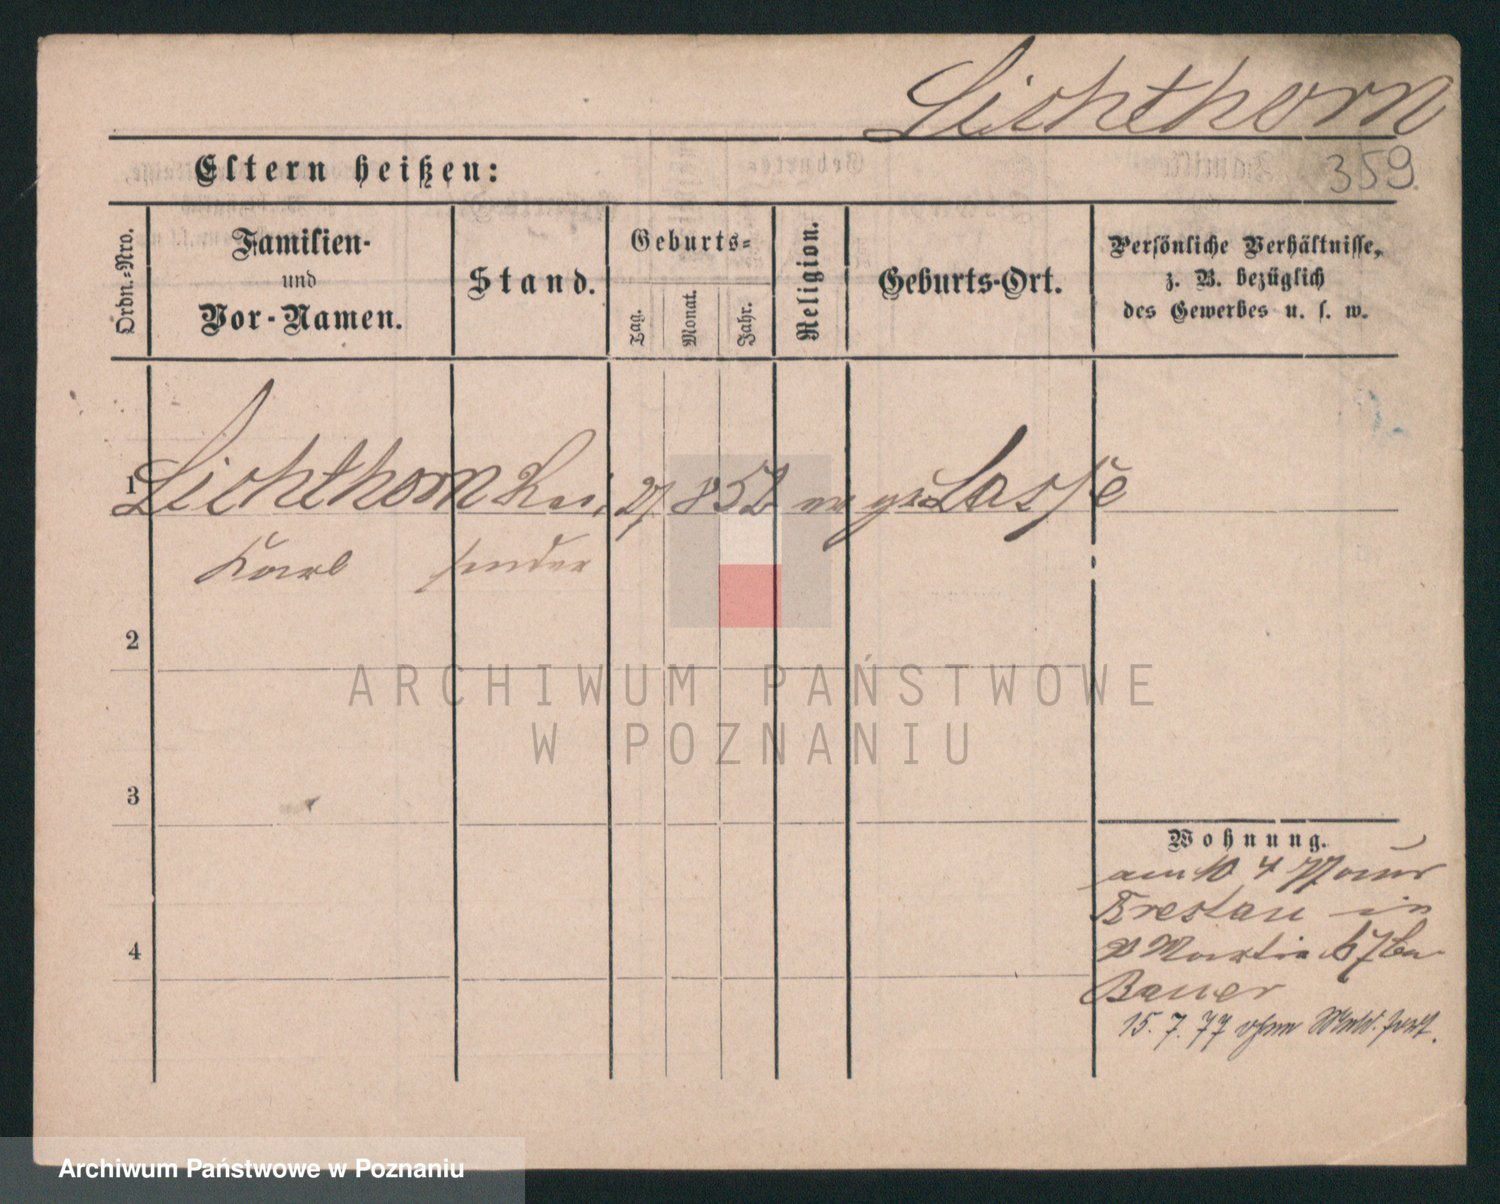 Lichthorn
359.
Eltern heißen:
Ordn.-Nro.
Familien-
und
Vor-Namen.
Stand.
Geburts-
Tag.
Monat.
Jahr.
Religion.
Geburts-Ort.
Persönliche Verhältnisse,
z. B. bezüglich
des Gewerbes u. s. w.
1 Lichthorn Rei 27 8 52 ev gr Lasse
Karl sender
2
3
4
Wohnung.
am 10 4 77 aus
Breslau in
Martin 67 bei
Bauer
15. 7. 77 ohne Meld. fort.
ARCHIWUM PAŃSTWOWE
W POZNANIU
Archiwum Państwowe w Poznaniu